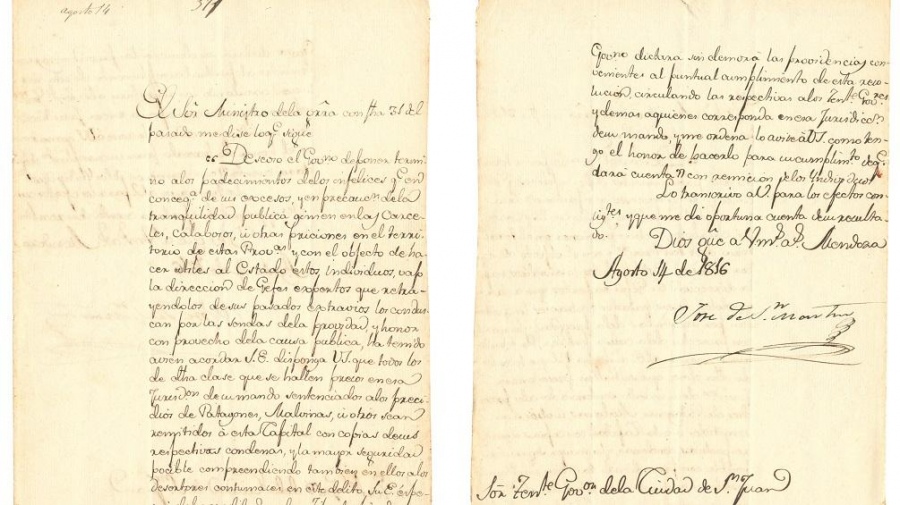 agosto 14
El Sór Ministro dela Grra con fha 31 del
pasado me dise loq.e sigue
"Deseoso el Gov.no de poner termi-
no alos padecimientos delos infelices q.e en
conseq.a de sus excesos, y en precauc.n dela
tranquilidad publica gimen en las Carce-
les, calabosos, ú otras priciones en el terri-
torio de estas Prov.as y con el objecto de ha-
cer utiles al Estado estos individuos, vajo
la direccion de Gefes expertos que retra-
yendolos de sus pasados extravios los condus-
can por las sendas dela providad, y honor
con provecho dela causa publica, ha tenido
avien acordar S.E. disponga VS. que todos los
de dha clase que se hallen presos en esa
Jurisd.on de su mando sentenciados alos presi-
dios de Patagones, Malvinas, ú otros sean
remitidos á esta Capital con copias de sus
respectivas condenas, y la mayor seguridad
posible comprendiendo tambien en ellos alos
desertores contumaces en este delito. S.E. espe-
Gov.no dictara sin demora las providencias con-
venientes al puntual cumplimiento de esta reso-
lucion, circulando las respectivas alos Ten.tes Gov.res
y demas aquienes corresponda en esa Jurisdicc.n
de su mando, y me ordena lo avise á VS. como ten-
go el honor de hacerlo para su cumplim.to de q.e
dará cuenta con remicion de los Individuos"
Lo transcrivo a V. para los efectos con-
sig.tes y que me dé oportuna cuenta de su resulta-
do.
Dios gũe a Vm.s a.s Mendoza
Agosto 14 de 1816
Jose de S.n Martin
Sór. Ten.te Gov.or dela Ciudad de S.n Juan